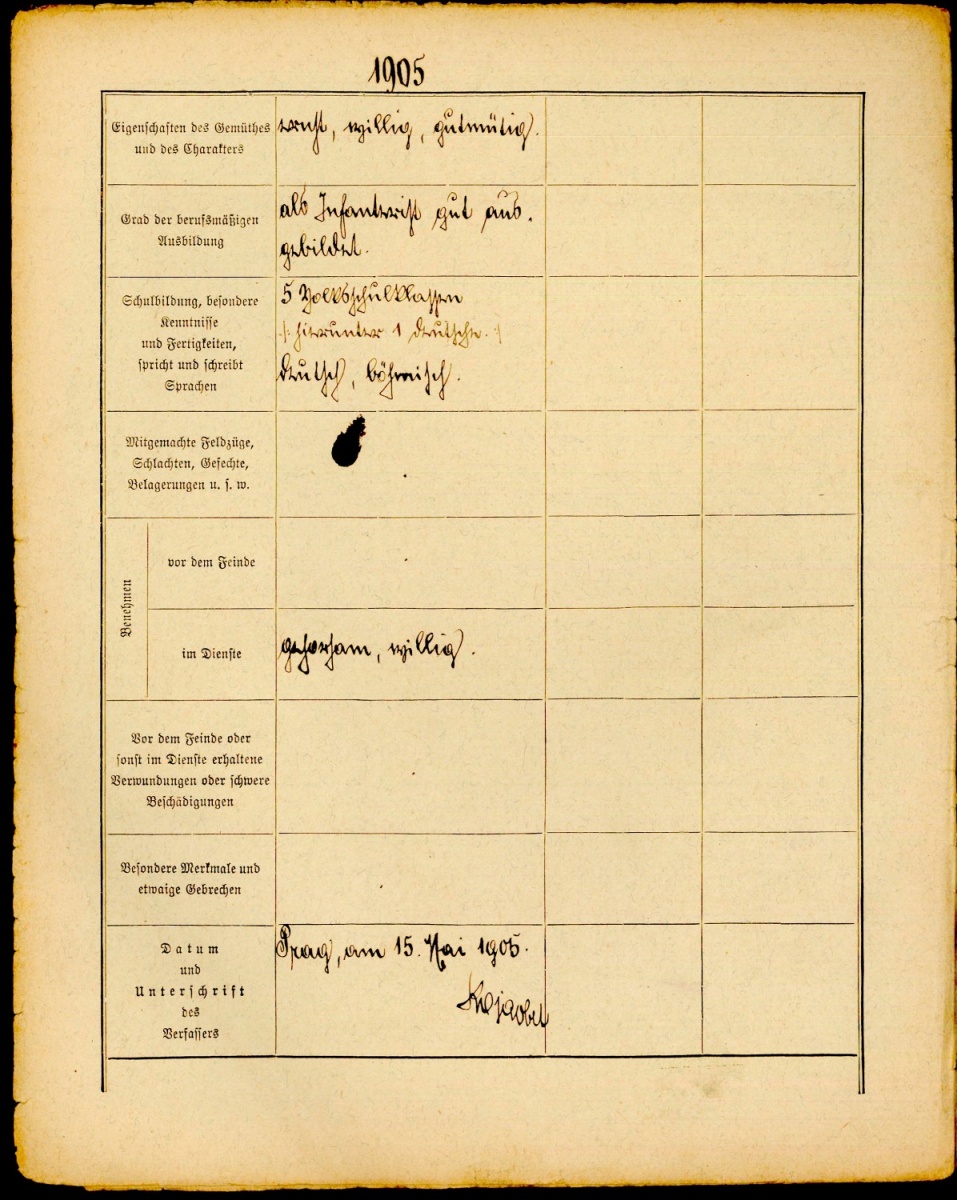 1905
Eigenschaften des Gemüthes
und des Charakters
ernst, willig, gutmütig.
Grad der berufsmäßigen
Ausbildung
als Infanterist gut aus-
gebildet.
Schulbildung, besondere
Kenntnisse
und Fertigkeiten,
spricht und schreibt
Sprachen
5 Volksschulklassen
/: hierunter 1 deutsche. :/
deutsch, böhmisch.
Mitgemachte Feldzüge,
Schlachten, Gefechte,
Belagerungen u. s. w.
Benehmen
vor dem Feinde
im Dienste
gehorsam, willig.
Vor dem Feinde oder
sonst im Dienste erhaltene
Verwundungen oder schwere
Beschädigungen
Besondere Merkmale und
etwaige Gebrechen
Datum
und
Unterschrift
des
Verfassers
Prag, am 15. Mai 1905.